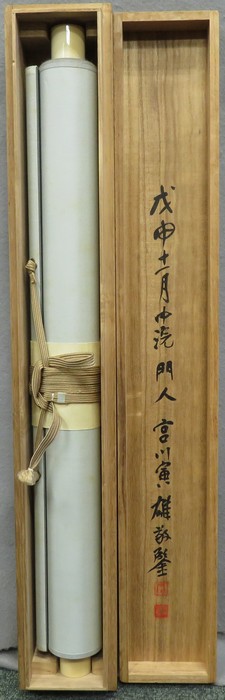 戊申十一月中浣 門人 宮川寅雄敬鑒